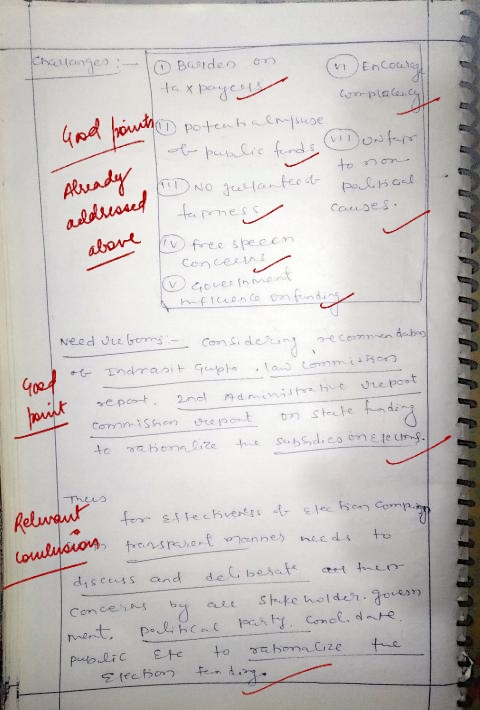 Challenges:-
(I) Burden on
tax payers
(II) potential misuse
of public funds
(III) No guarantee of
fairness
(IV) free speech
concerns
(V) Government
influence on funding
(VI) Encourage
complacency
(VII) Unfair
to non
political
causes.
Good points
Already
addressed
above
Need reforms:- Considering recommendation
of Indrajit Gupta, law commission
report, 2nd Administrative report
commission report on state funding
to rationalize the subsidies on electrns.
Good
point
Thus
for effectiveness of election campaign
in transparent manner needs to
discuss and deliberate their
concerns by all stakeholder. govern
ment, political party, candidate,
public etc to rationalize the
election funding.
Relevant
conclusion